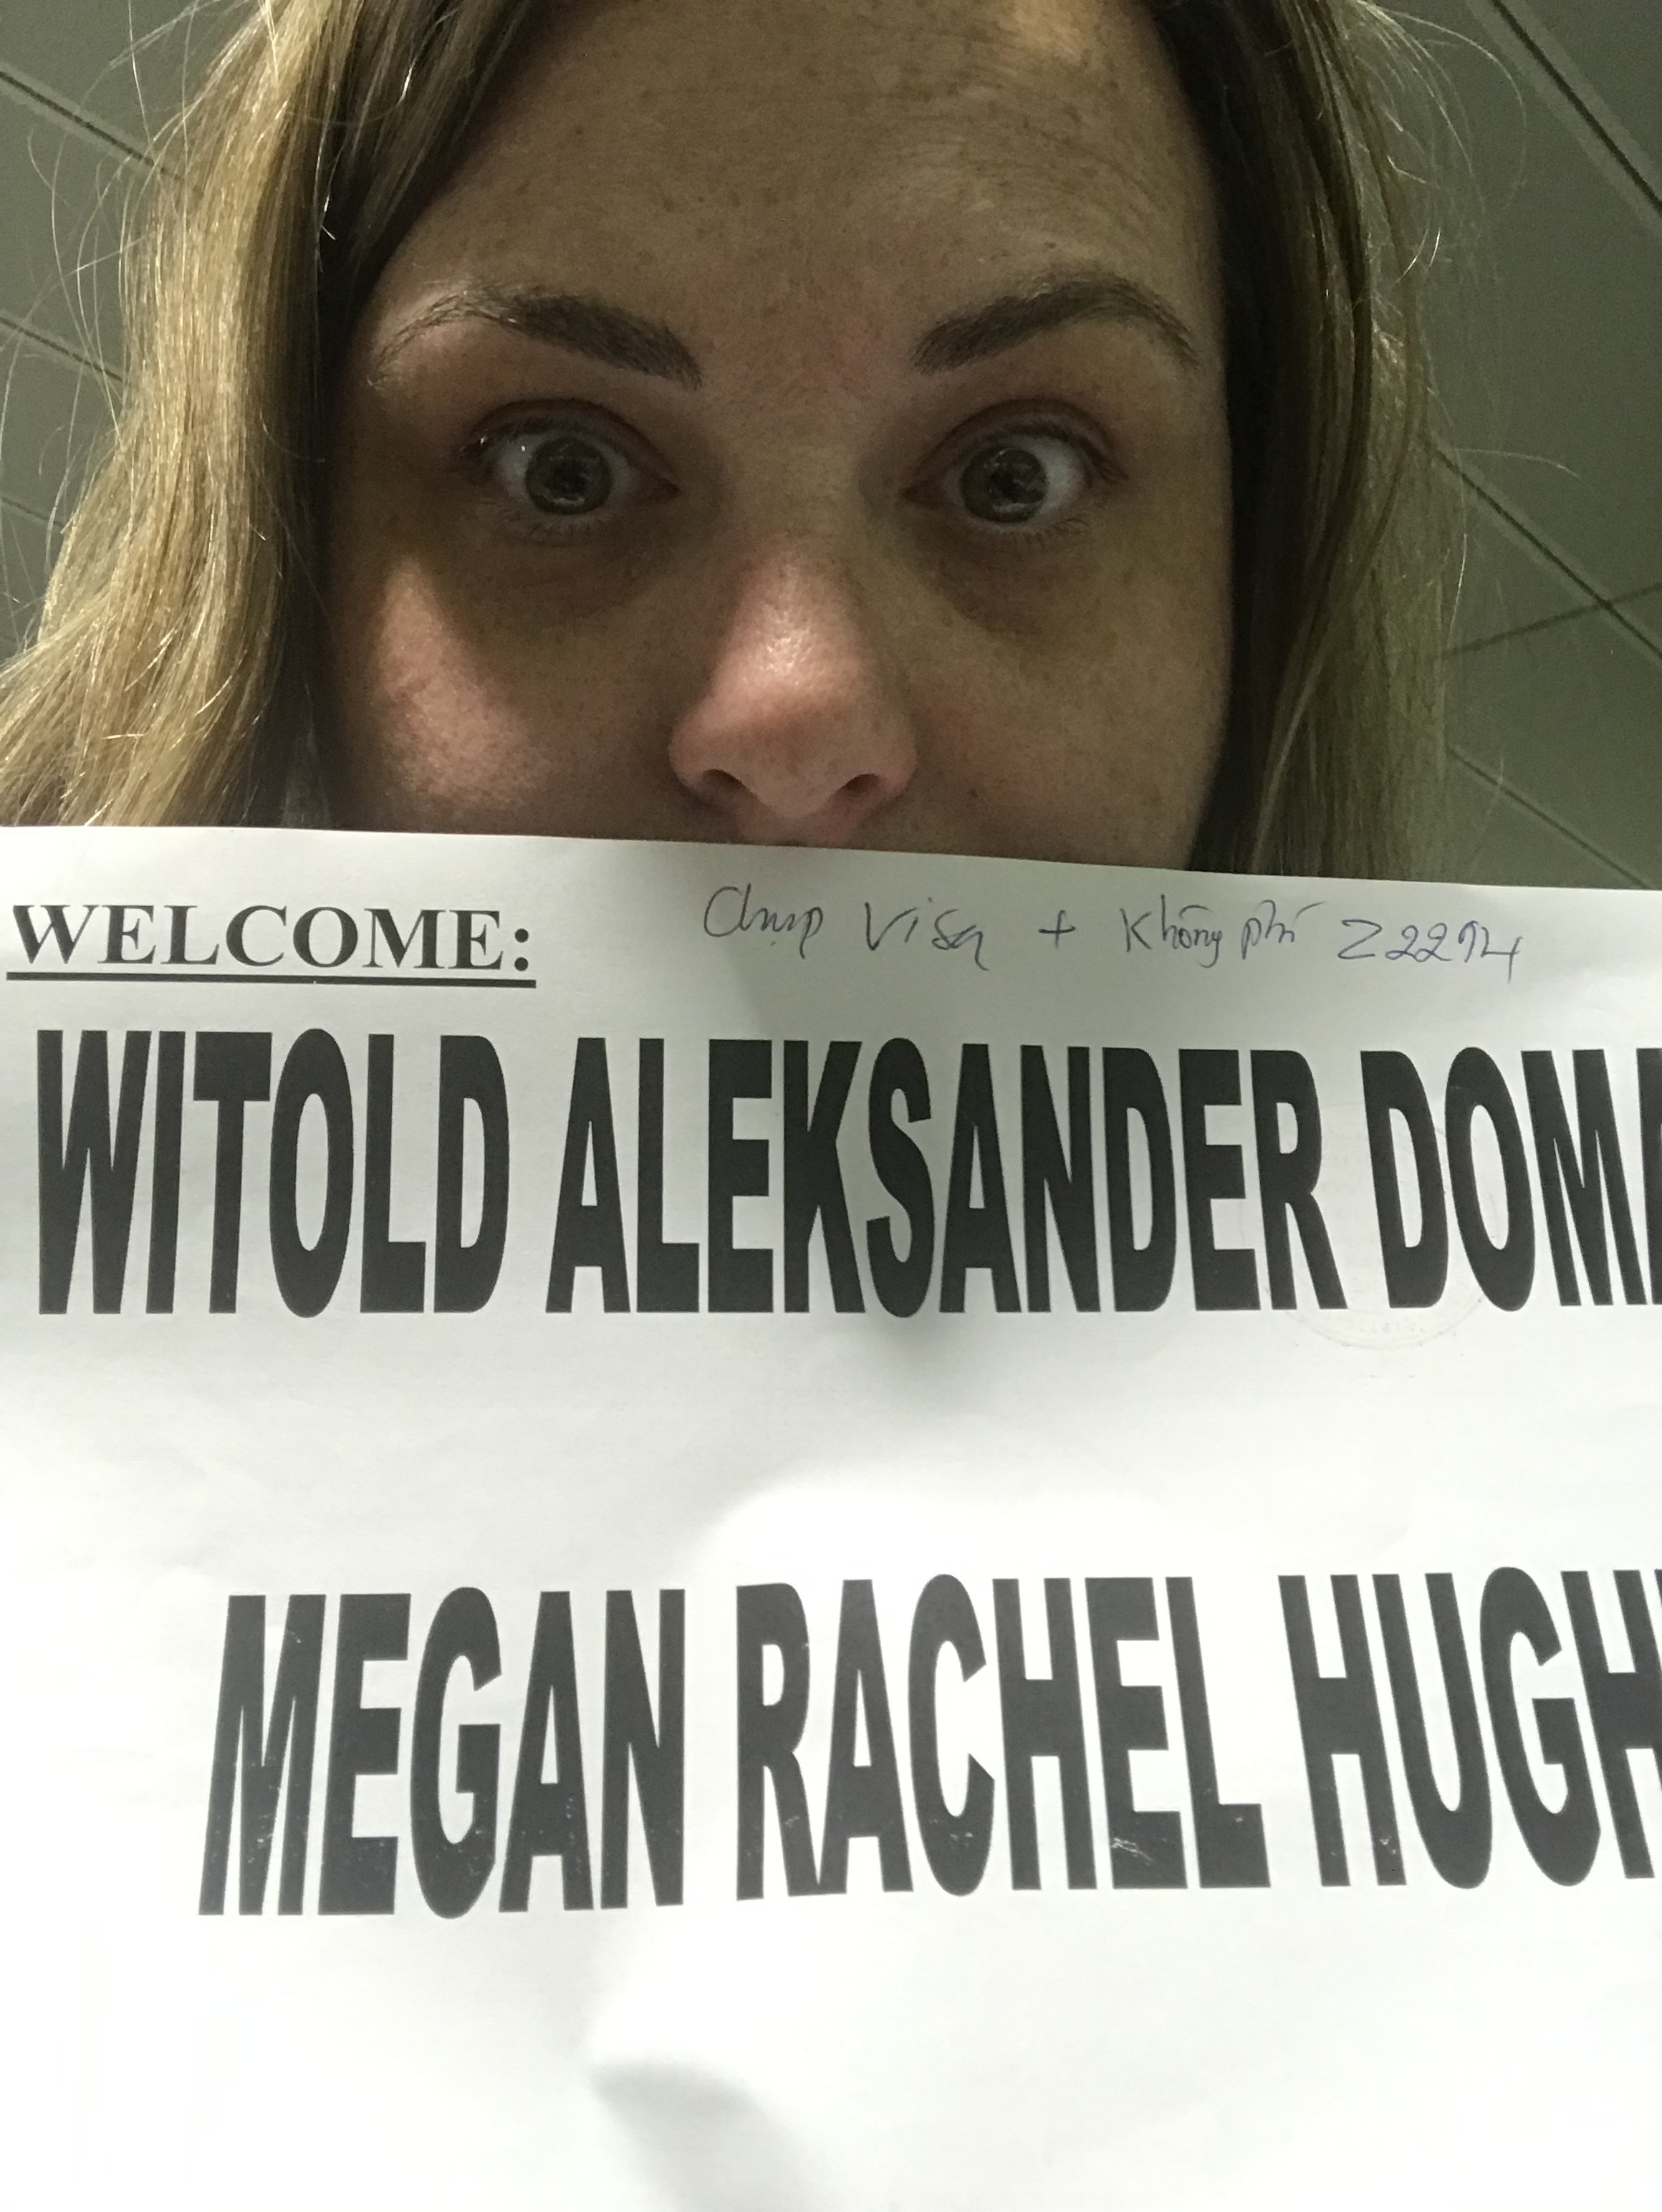 WELCOME: Chụp Visa + Không phí Z2294
WITOLD ALEKSANDER DOMA
MEGAN RACHEL HUGH